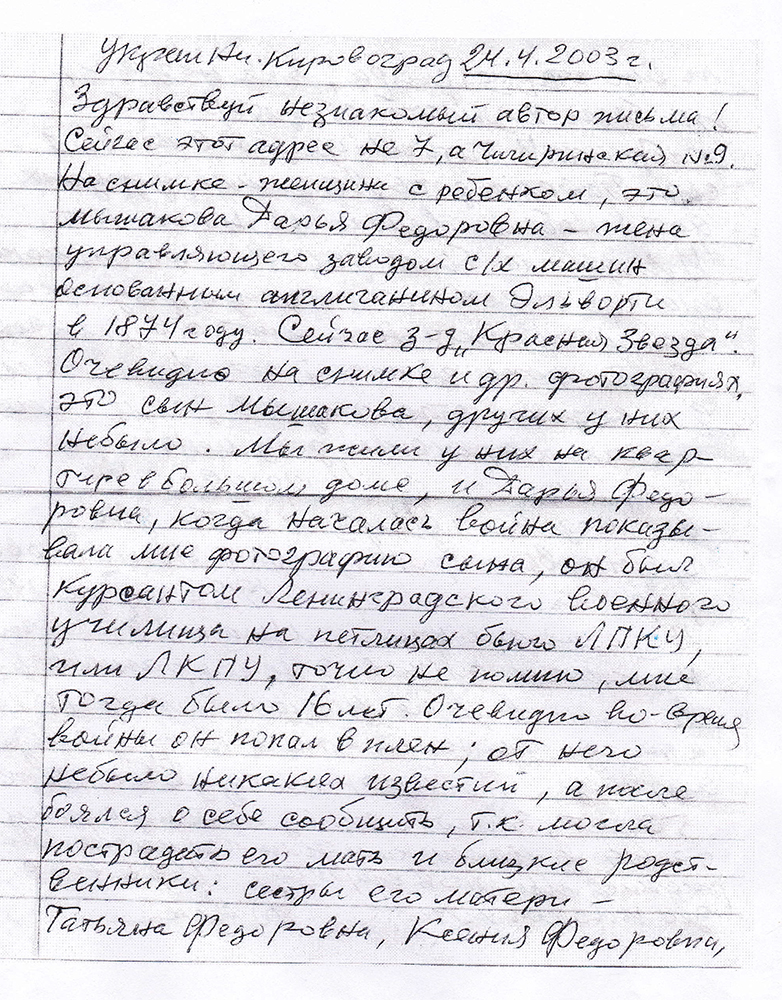 Украина. Кировоград 24.4.2003 г.
Здравствуй незнакомый автор письма!
Сейчас этот адрес не 7, а Чигиринская №9.
На снимке - женщина с ребенком, это
Мышакова Дарья Федоровна - жена
управляющего заводом с/х машин
основанным англичанином Эльворти
в 1874 году. Сейчас з-д "Красная Звезда".
Очевидно на снимке и др. фотографиях,
это сын Мышакова, других у них
небыло. Мы жили у них на квар-
тире в большом доме, и Дарья Федо-
ровна, когда началась война показы-
вала мне фотографию сына, он был
курсантом Ленинградского военного
училища на петлицах было ЛПКУ,
или ЛКПУ, точно не помню, мне
тогда было 16 лет. Очевидно во-время
войны он попал в плен; от него
небыло никаких известий, а после
боялся о себе сообщить, т.к. могла
пострадать его мать и близкие родст-
венники: сестры его матери -
Татьяна Федоровна, Ксения Федоровна,